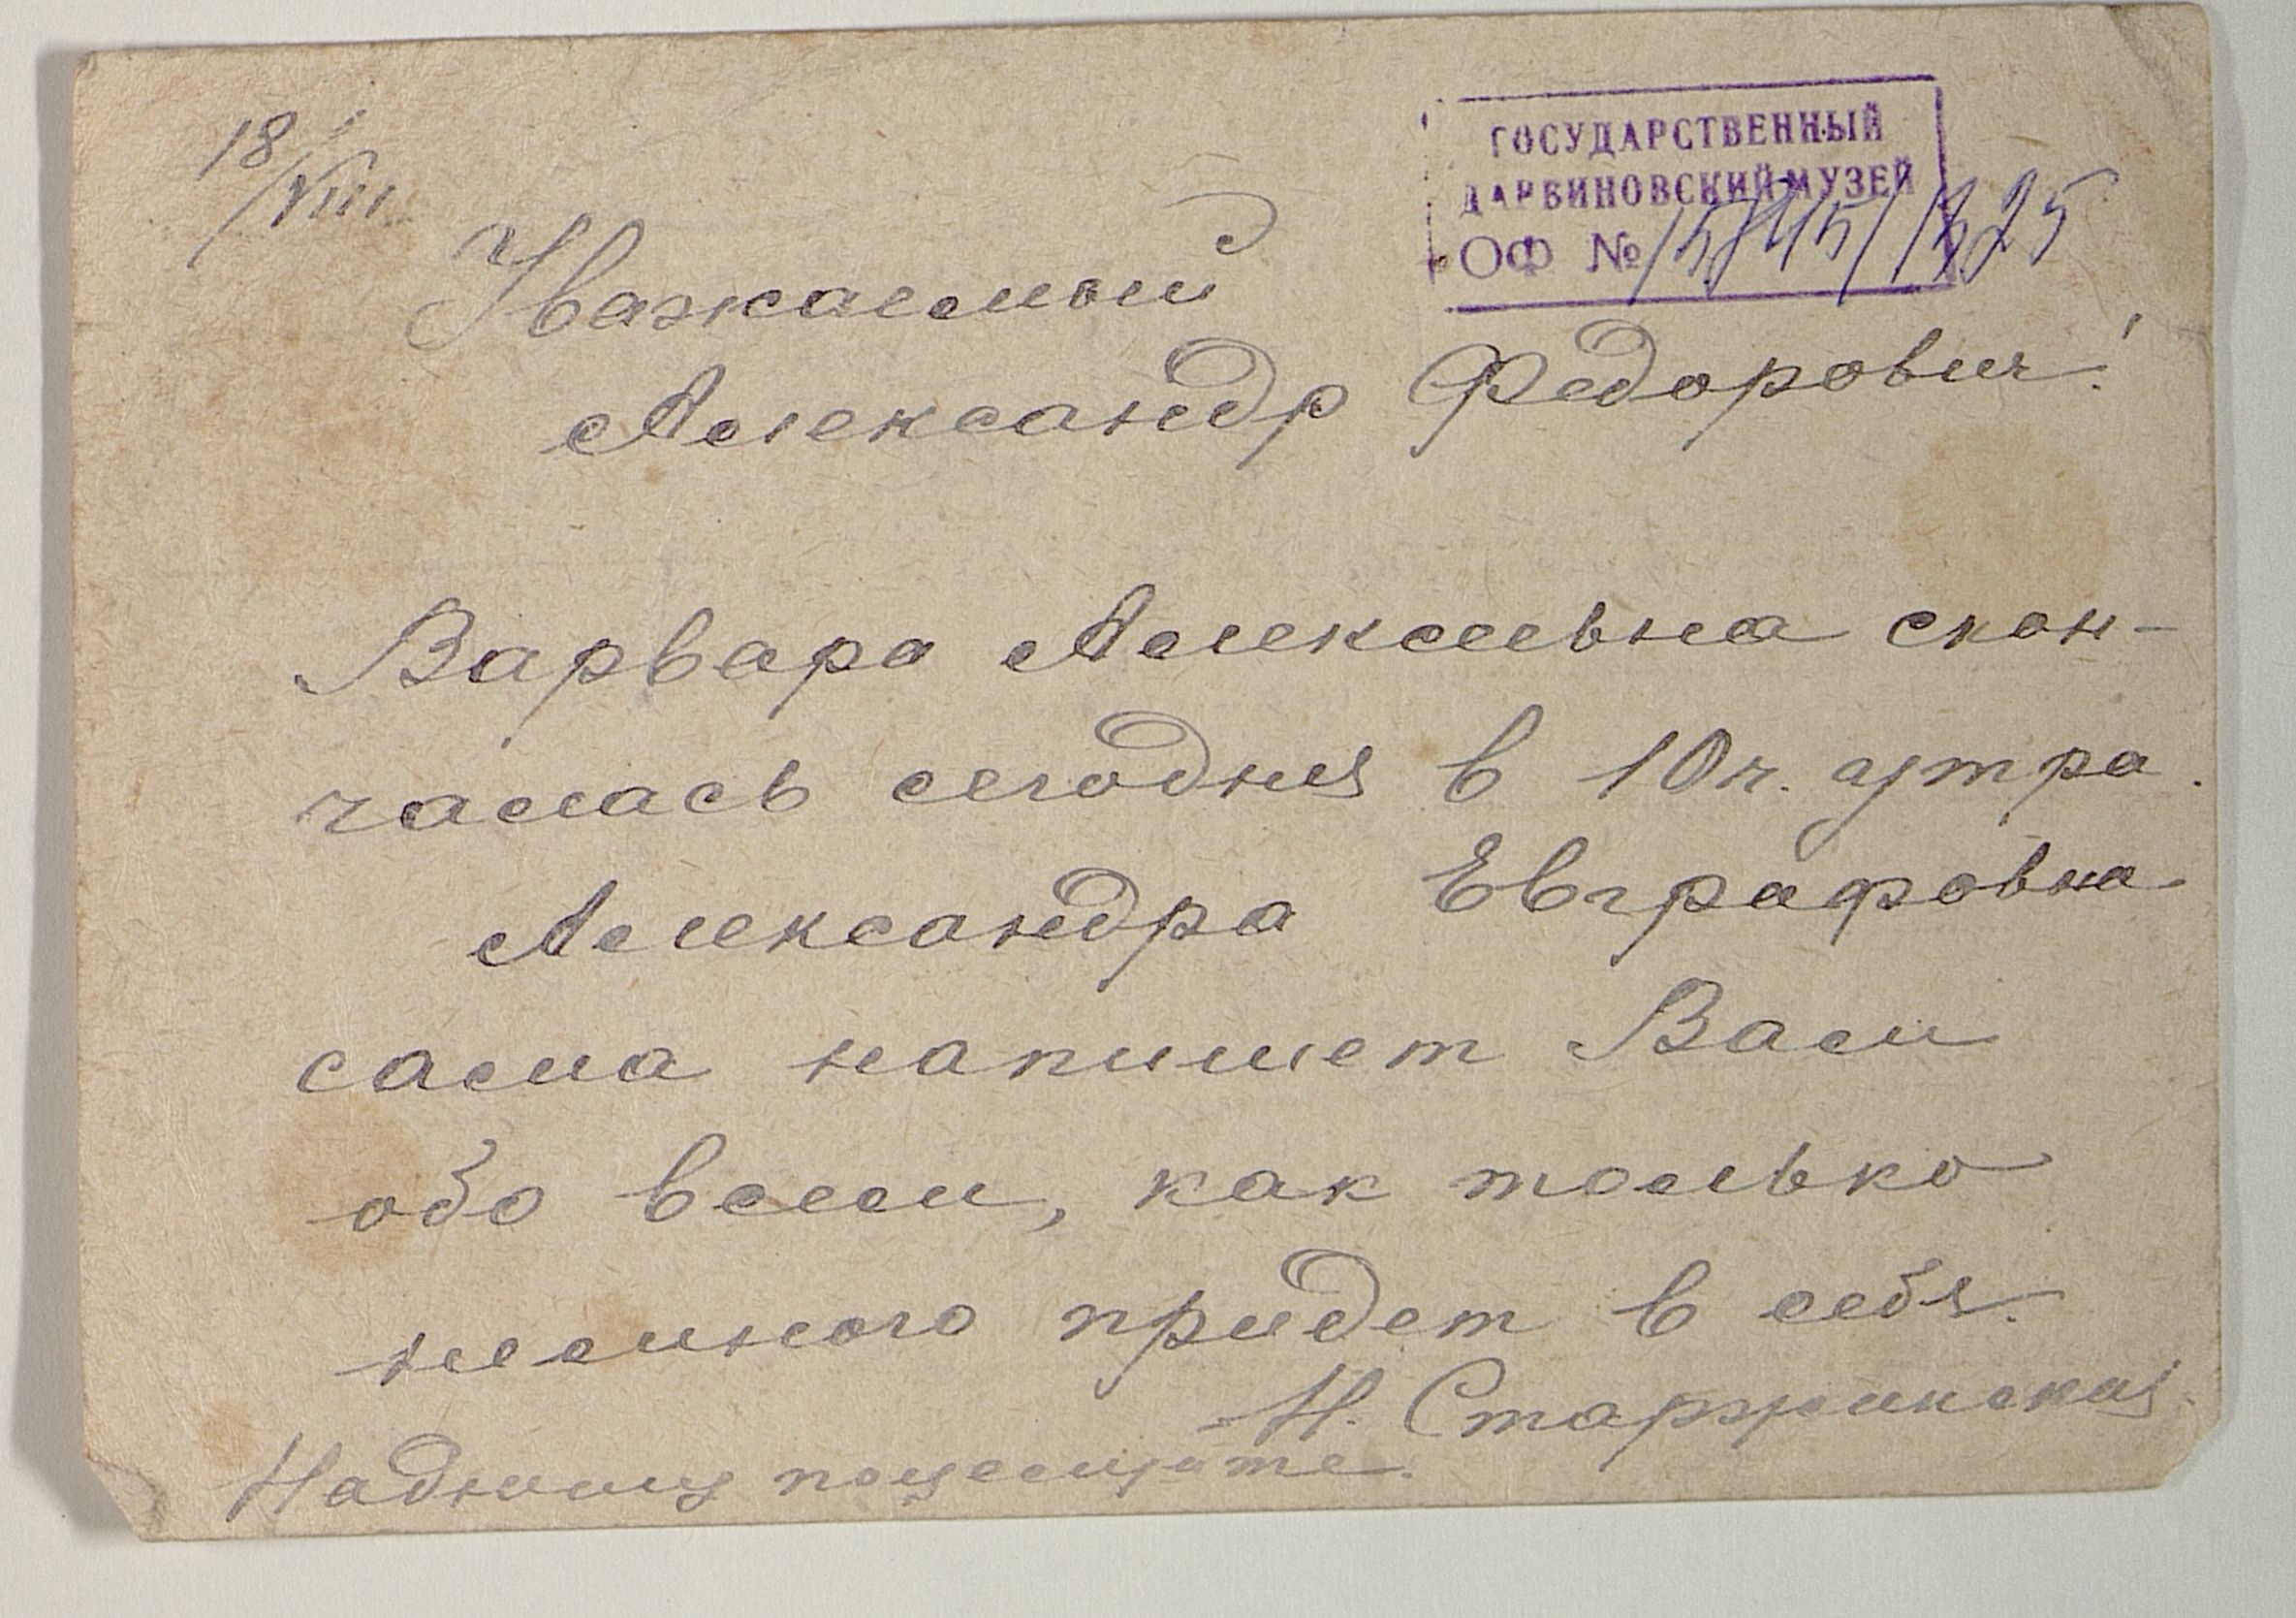 18/VIII
ГОСУДАРСТВЕННЫЙ
ДАРВИНОВСКИЙ МУЗЕЙ
ОФ №
Уважаемый
Александр Федорович!
Варвара Алексеевна скон-
чалась сегодня в 10 ч. утра.
Александра Евграфовна
сама напишет Вам
обо всем, как только
немного придет в себя.
Н.
Надюшу поцелуйте.